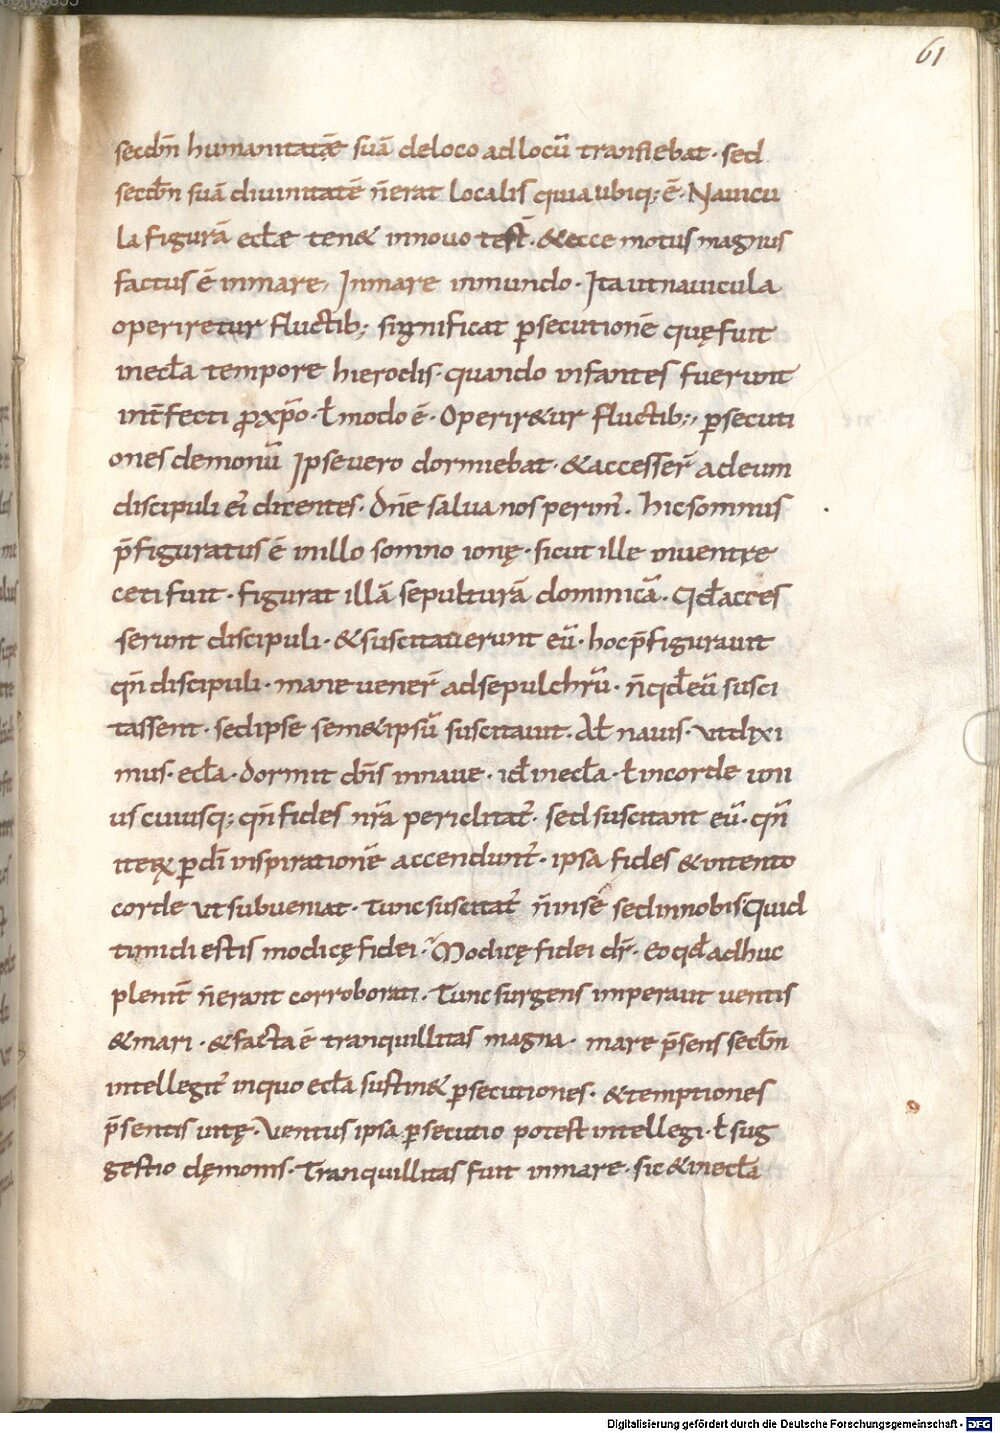 61
secdm̄ humanitatē suā deloco adlocū transiebat· sed
secdm̄ suā diuinitatē n̄erat localis quia ubiq; ē· Nauicu
la figurā eccl̄æ ten& innouo test̄· &ecce motus magnus
factus ē inmare, Inmare inmundo· Ita utnauicula
operiretur fluctib; significat p̱secutionē quę fuit
inecl̄a tempore hierodis· quando infantes fuerunt
int̄fecti ꝓ xp̄o· ł modo ē· Operir&ur fluctib;, p̱secuti
ones demonū Ipse uero dormiebat· &accesser̄ adeum
discipuli ei' dicentes· Dn̄e salua nos perim'· hicsomnus
p̄figuratus ē inillo somno ionę· sicut ille inuentre
ceti fuit· figurat illā sepulturā dominicā· Qd̄ acces
serunt discipuli· &suscitauerunt eū· hocp̄figurauit
qn̄ discipuli· mane uener̄ adsepulchrū· n̄ qd̄ eū susci
tassent· sed ipse sem&ipsū suscitauit. At̄ nauis· ut dixi
mus· ecl̄a· dormit dn̄s innaue· id̄ inecl̄a· ł incorde uni
us cuiusq; qn̄ fides nr̄a periclitat̄· sed suscitant eū· qn̄
iterꝝ p̱ dī inspirationē accendunt̄· ipsa fides & intento
corde ut subueniat· Tunc suscitat̄ n̄ inse sed innobis Quid
timidi estis modicę fidei· Modicę fidei dr̄· Eo qd̄ adhuc
plenit̄ n̄erant corroborati. Tunc surgens imperauit uentis
&mari· &facta ē tranquillitas magna· mare p̄sens secl̄m
intellegit̄ inquo ecl̄a sustin& p̱secutiones· &temptiones
p̄sentis uitę· Uentus ipsa p̱secutio potest intellegi· ł sug
gestio dęmonis· Tranquillitas fuit inmare· sic & inecl̄a
Digitalisierung gefördert durch die Deutsche Forschungsgemeinschaft - DFG